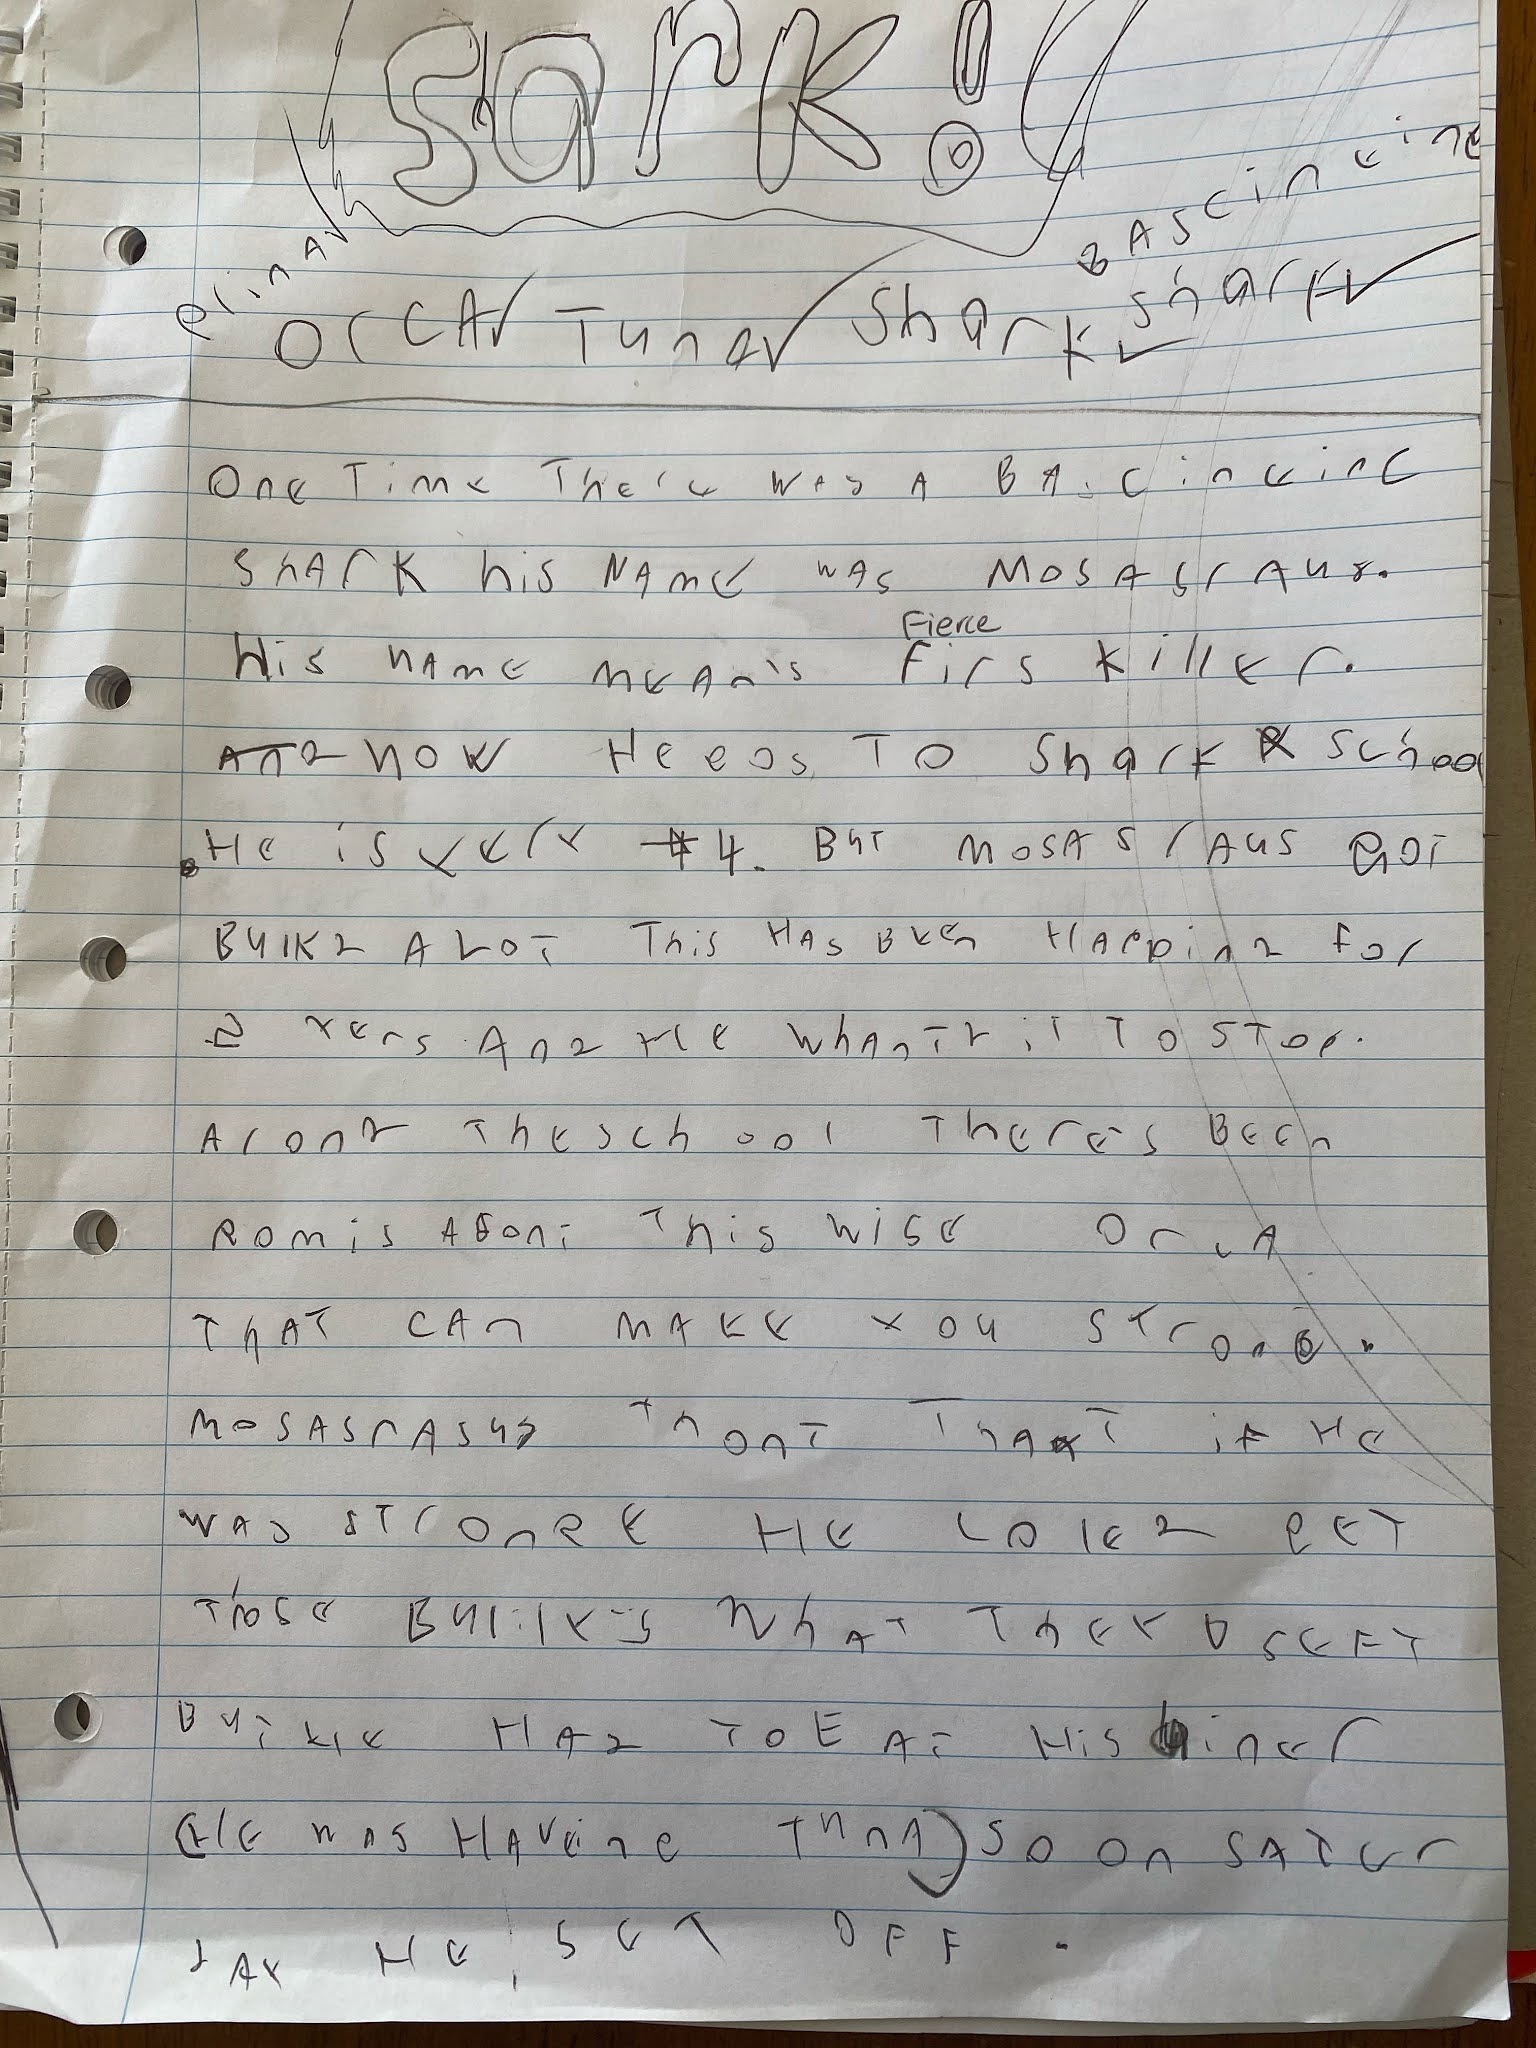 Shark!
BAScinGinG
PlinAr
OrCA TunA Shark Shark
One Time There WAS A BAscinGinG
ShArK his NAME WAS MOSASrAus.
Fierce
His NAME MEAn's Firs Killer.
And NOW HE Gos TO Shark School
HE is VErY #4. BuT MOSASrAus GOT
BulKd A LOT This HAS BEEn HAPPind For
2 YErs And HE WhAnTd iT TO STOP.
Arond The School ThErE's BEEn
ROMis ABOnT This WiSE OrcA
THAT CAn MAKE YOU STronG.
MOSASrASus ThOnT ThAT iF HE
WAS STronG E HE COlEd GET
ThoSE BulliEs WhAT ThEY DSEFT
BuT HE HAd TO EAT His diner
(HE WAS HAVEinG TunA) SO On SATEr
dAY HE SET OFF.